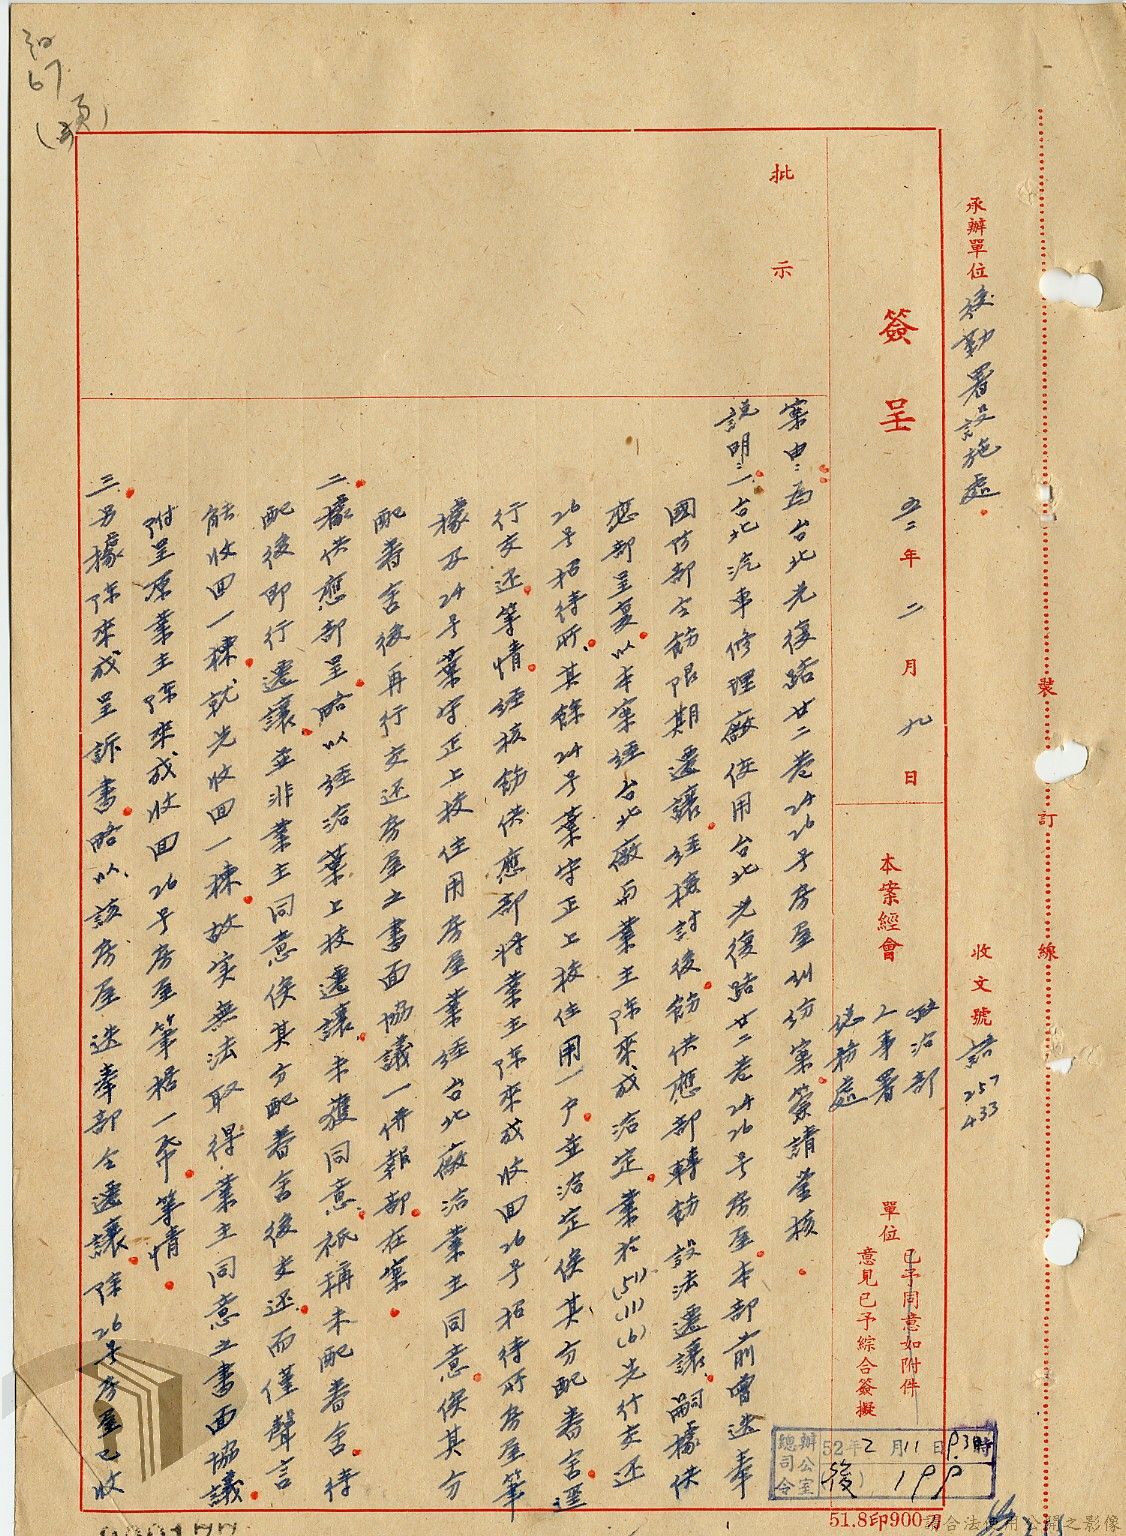 承辦單位 後勤署設施處
收文號 諮 257 433
裝訂線
簽呈
五二年二月九日
本案經會 政治部 人事署 總務處 單位
已予同意如附件
意見已予綜合簽擬
批示
案由:為台北光復路廿二巷24 26号房屋糾紛案簽請鑒核
說明:一、台北汽車修理廠使用台北光復路廿二巷24 26号房屋本部前曾迭奉
國防部令飭限期遷讓經檢討後飭供應部轉飭設法遷讓嗣據供
應部呈复以本案經台北廠與業主陳來成洽定業於(51)(11)(6)先行交还
26号招待所其餘24号葉守正上校住用一户並洽定俟其分配眷舍逕
行交还等情經核飭供應部將業主陳來成收回26号招待所房屋筆
據及24号葉守正上校住用房屋業經台北廠洽業主同意俟其分
配眷舍後再行交还房屋之書面協議一併報部在案
二、據供應部呈略以經洽葉上校遷讓未獲同意祇稱未配眷舍待
配後即行遷讓並非業主同意俟其分配眷舍後交还而僅聲言
能收回一棟就先收回一棟故实無法取得業主同意之書面協議
附呈原業主陳來成收回26号房屋筆據一帋等情
三、另據陳來成呈訴書略以該房屋迭奉部令遷讓除26号房屋已收
總司令辦公室
52年2月11日P.3時
後
51.8印900